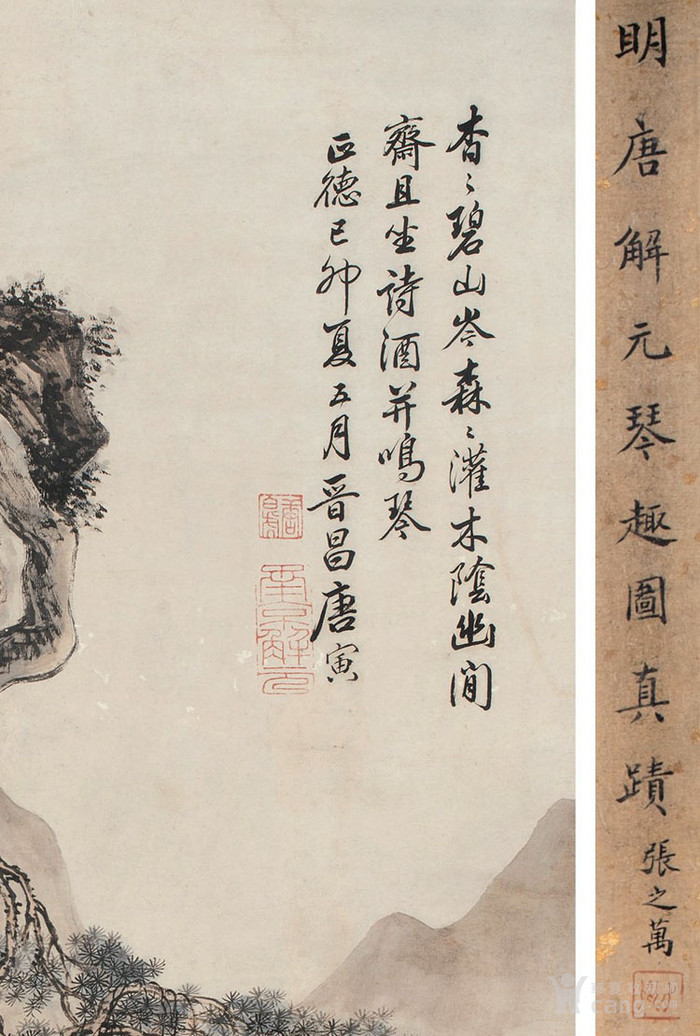 明唐解元琴趣圖真蹟
張之萬
杳〻碧山岑森〻灌木陰幽閒
齋且坐詩酒并鳴琴
正德己卯夏五月晉昌唐寅
唐白虎
南京解元